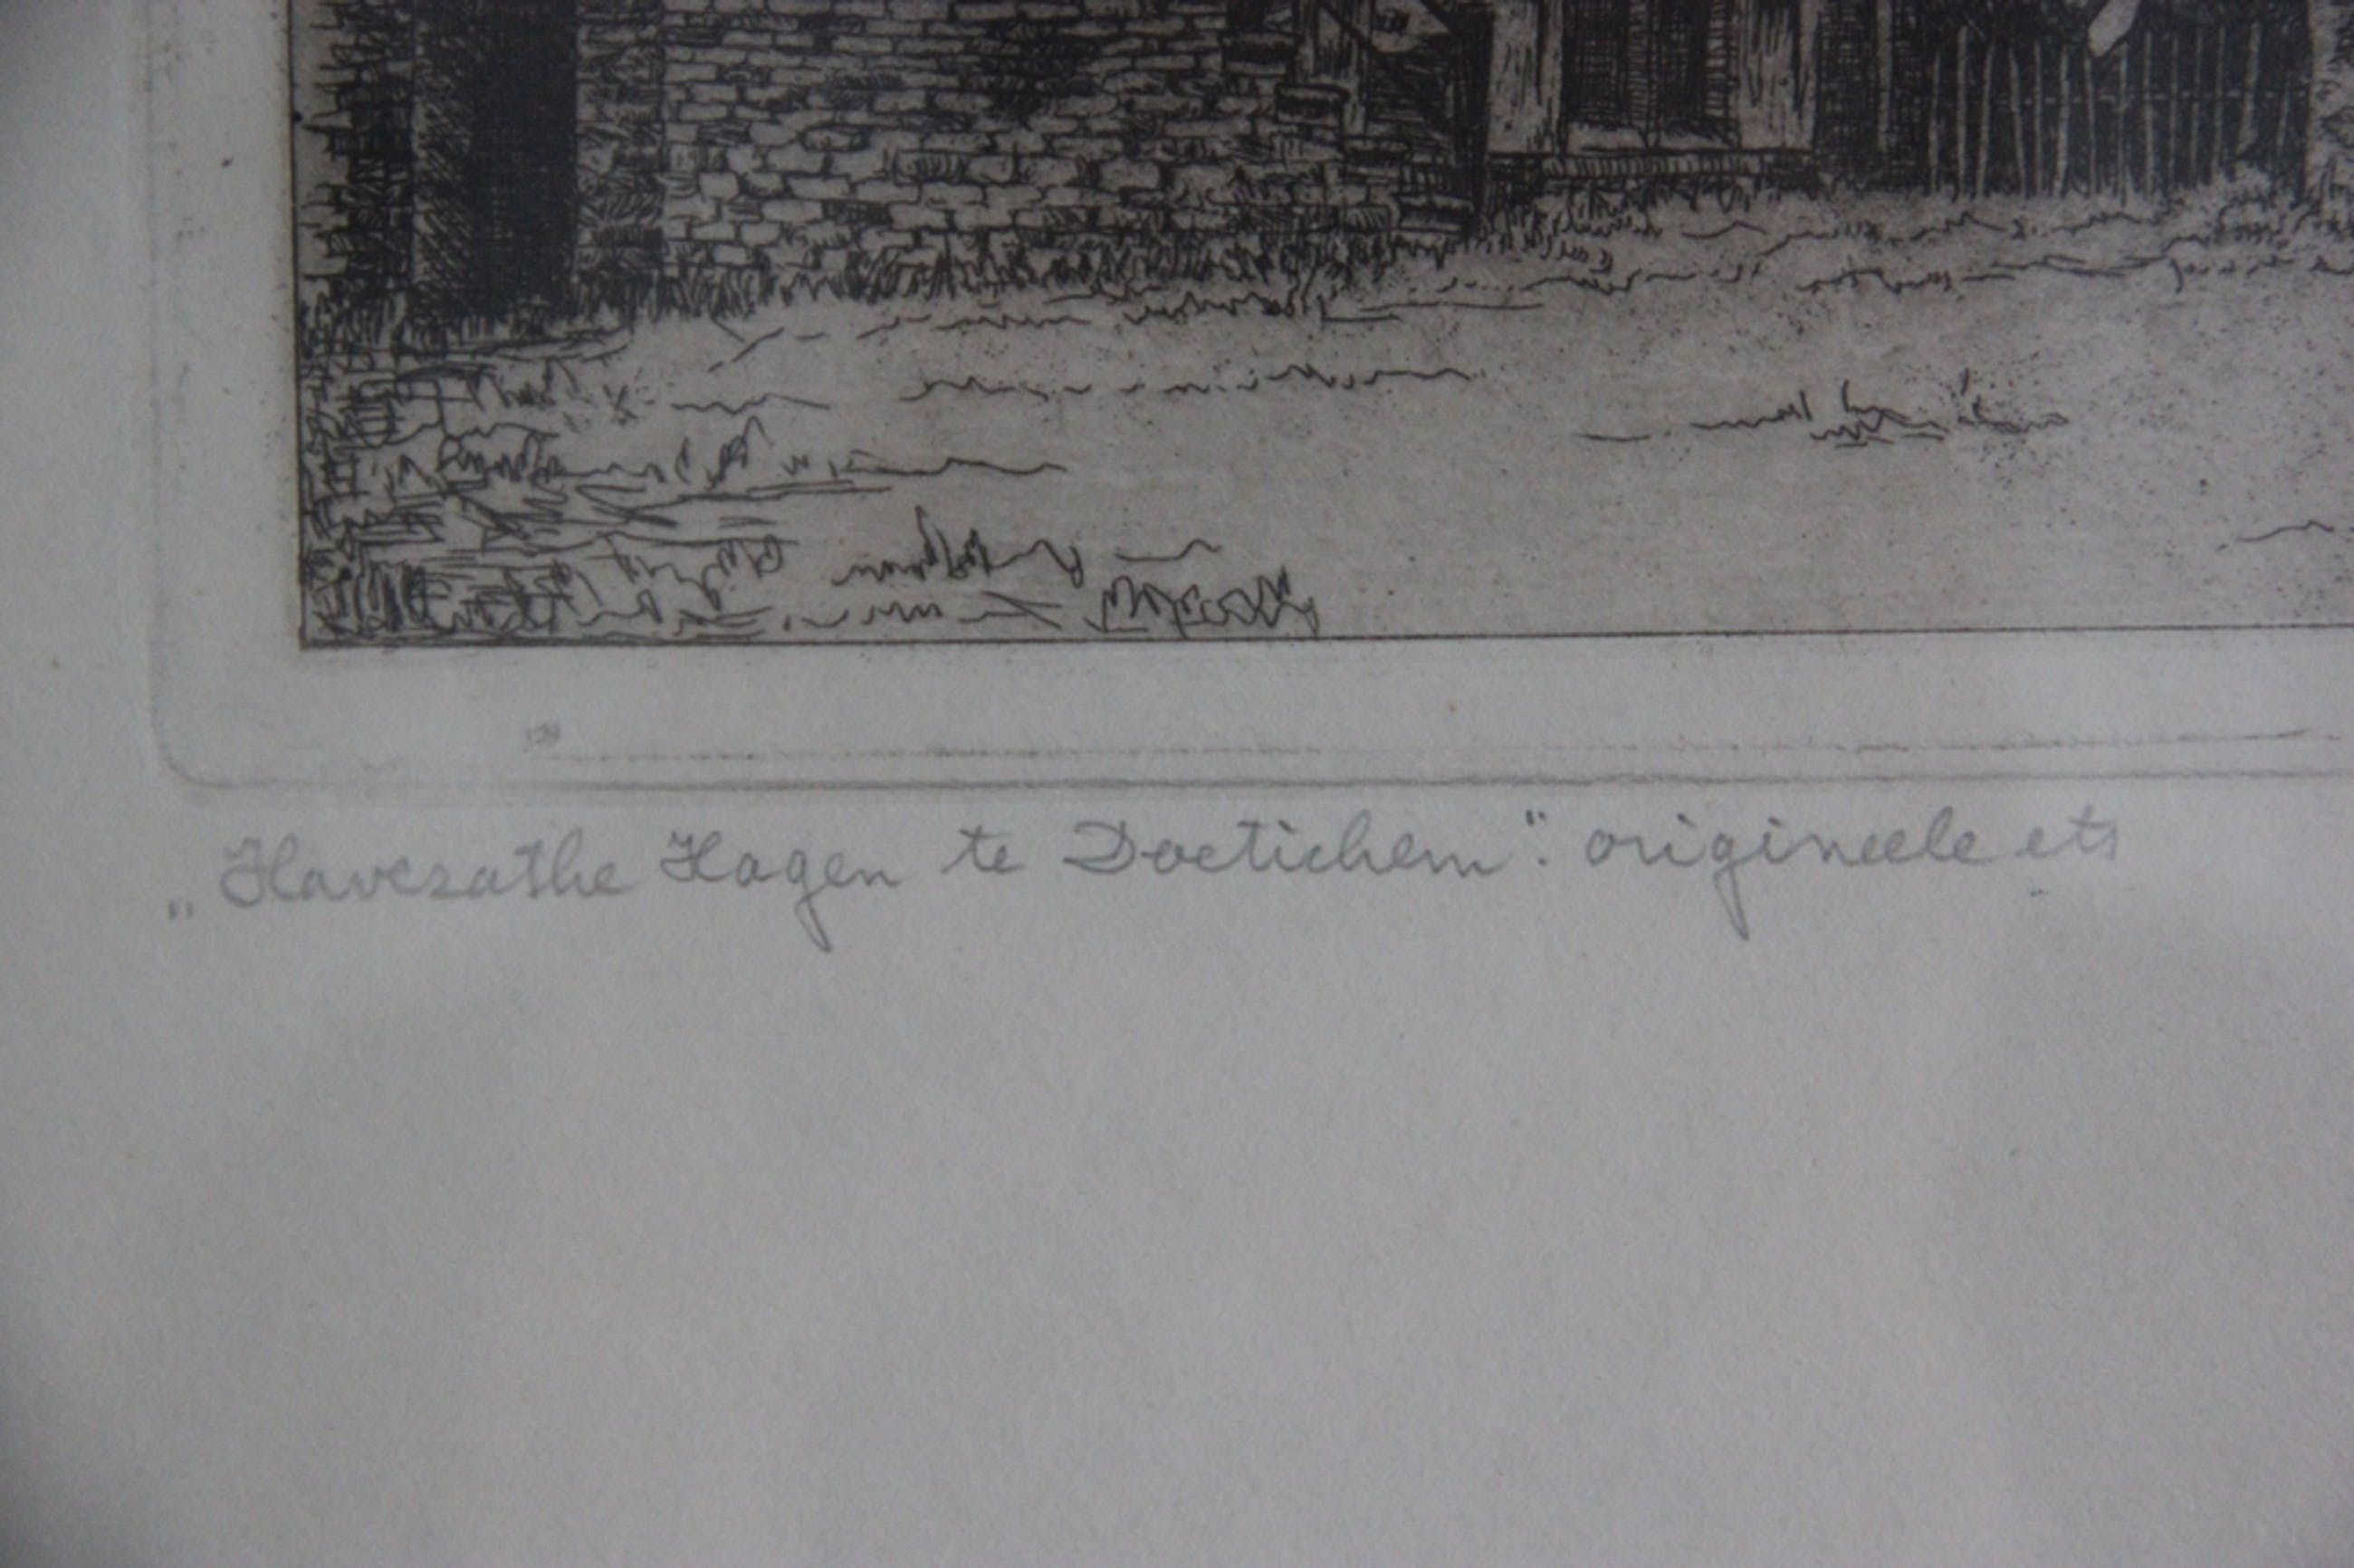 „Havezathe Hagen te Doetichem". origineele ets